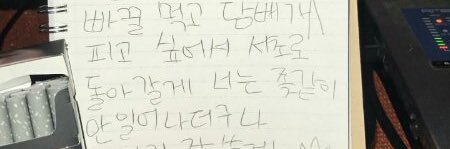 빠끌 먹고 담배개
피고 싶에서 서포로
돌아갈게 너는 족같이
안일어나더구나